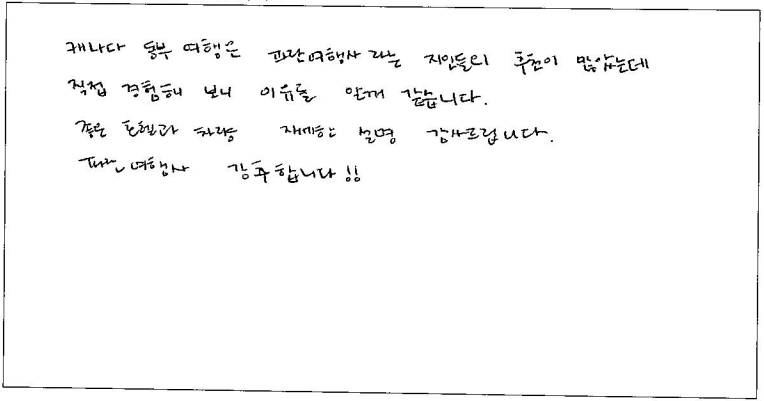 캐나다 동부 여행은 파란여행사 라는 지인들의 추천이 많았는데
직접 경험해 보니 이유를 알꺼 같습니다.
좋은 호텔과 차량 자세한 설명 감사드립니다.
파란여행사 강추합니다!!